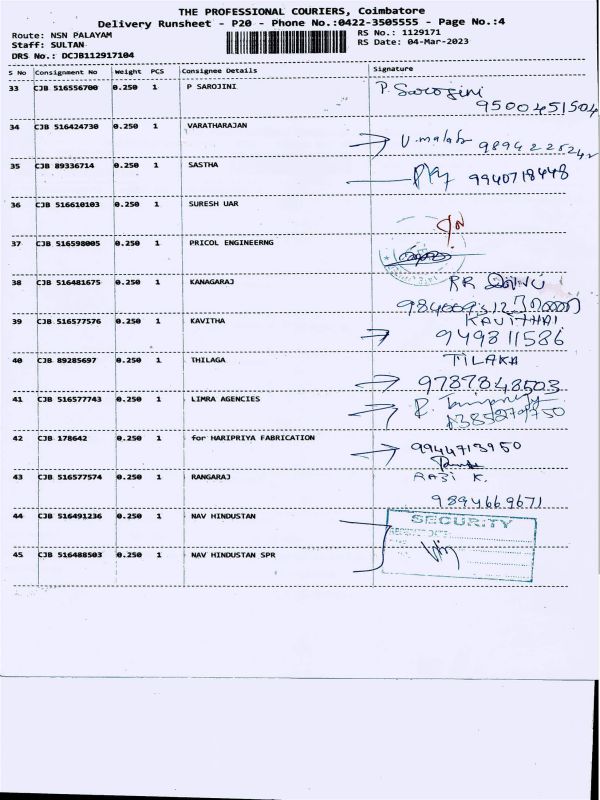 THE PROFESSIONAL COURIERS, Coimbatore
Delivery Runsheet - P20 - Phone No.:0422-3505555 - Page No.:4
Route: NSN PALAYAM RS No.: 1129171
Staff: SULTAN RS Date: 04-Mar-2023
DRS No.: DCJB112917104
S No Consignment No Weight PCS Consignee Details Signature
33 CJB 516556700 0.250 1 P SAROJINI P. Sarojini
9500451504
34 CJB 516424730 0.250 1 VARATHARAJAN
35 CJB 89336714 0.250 1 SASTHA 9940718448
36 CJB 516610103 0.250 1 SURESH UAR
37 CJB 516598005 0.250 1 PRICOL ENGINEERNG
38 CJB 516481675 0.250 1 KANAGARAJ RR
39 CJB 516577576 0.250 1 KAVITHA KAVITHAI
9498811586
40 CJB 89285697 0.250 1 THILAGA TILAKA
9787848503
41 CJB 516577743 0.250 1 LIMRA AGENCIES
42 CJB 178642 0.250 1 for HARIPRIYA FABRICATION 9944713950
43 CJB 516577574 0.250 1 RANGARAJ RABI K.
9894669671
44 CJB 516491236 0.250 1 NAV HINDUSTAN SECURITY
45 CJB 516488503 0.250 1 NAV HINDUSTAN SPR